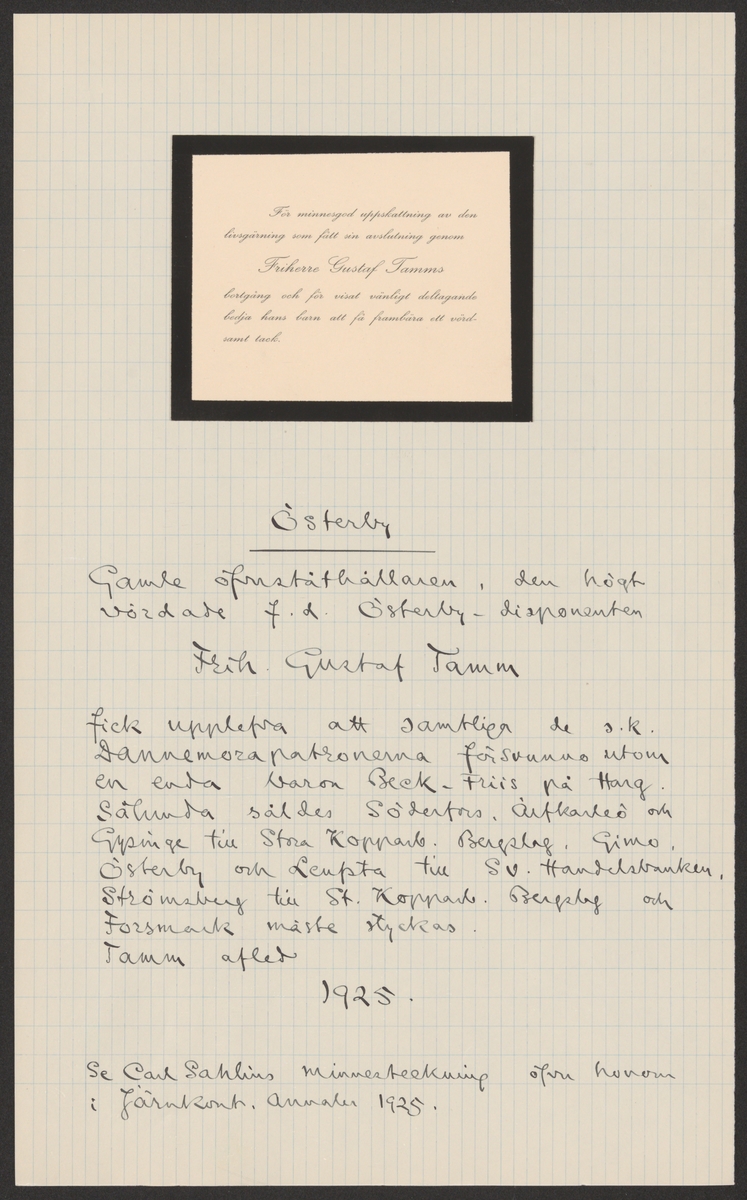 För minnesgod uppskattning av den
livsgärning som fått sin avslutning genom
Friherre Gustaf Tamms
bortgång och för visat vänligt deltagande
bedja hans barn att få frambära ett vörd-
samt tack.
Österby
Gamle öfverståthållaren, den högt
vördade f.d. Österby-disponenten
Frih. Gustaf Tamm
fick upplefva att samtliga de s.k.
Dannemorapatronerna försvunno utom
en enda baron Beck-Friis på Harg.
Sålunda såldes Söderfors, Älfkarleö och
Gysinge till Stora Kopparb. Bergslag, Gimo,
Österby och Leufsta till Sv. Handelsbanken,
Strömsberg till St. Kopparb. Bergslag och
Forsmark måste styckas.
Tamm afled
1925.
Se Carl Sahlins minnesteckning öfver honom
i Järnkont. Annaler 1925.